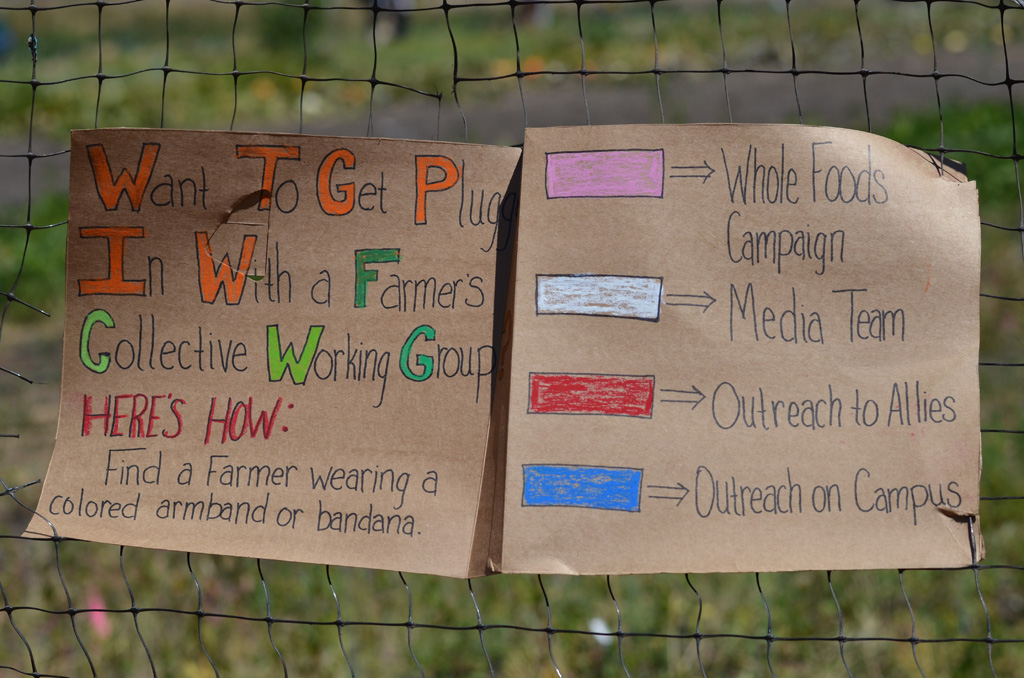 Want To Get Plugg
In With a Farmer's
Collective Working Group
HERE'S HOW:
Find a Farmer wearing a
colored armband or bandana.
Whole Foods
Campaign
Media Team
Outreach to Allies
Outreach on Campus